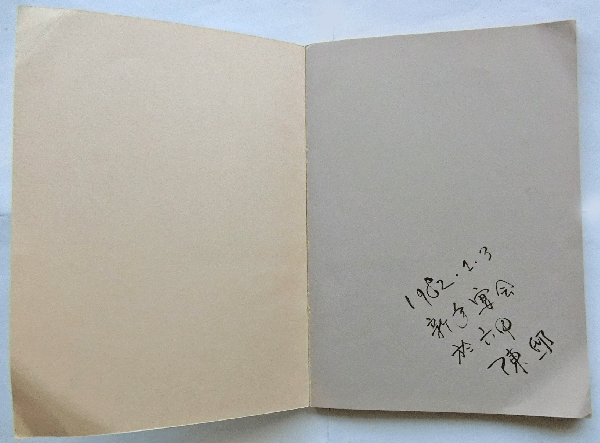 1982.1.3
新年宴会
於六甲
陳邸